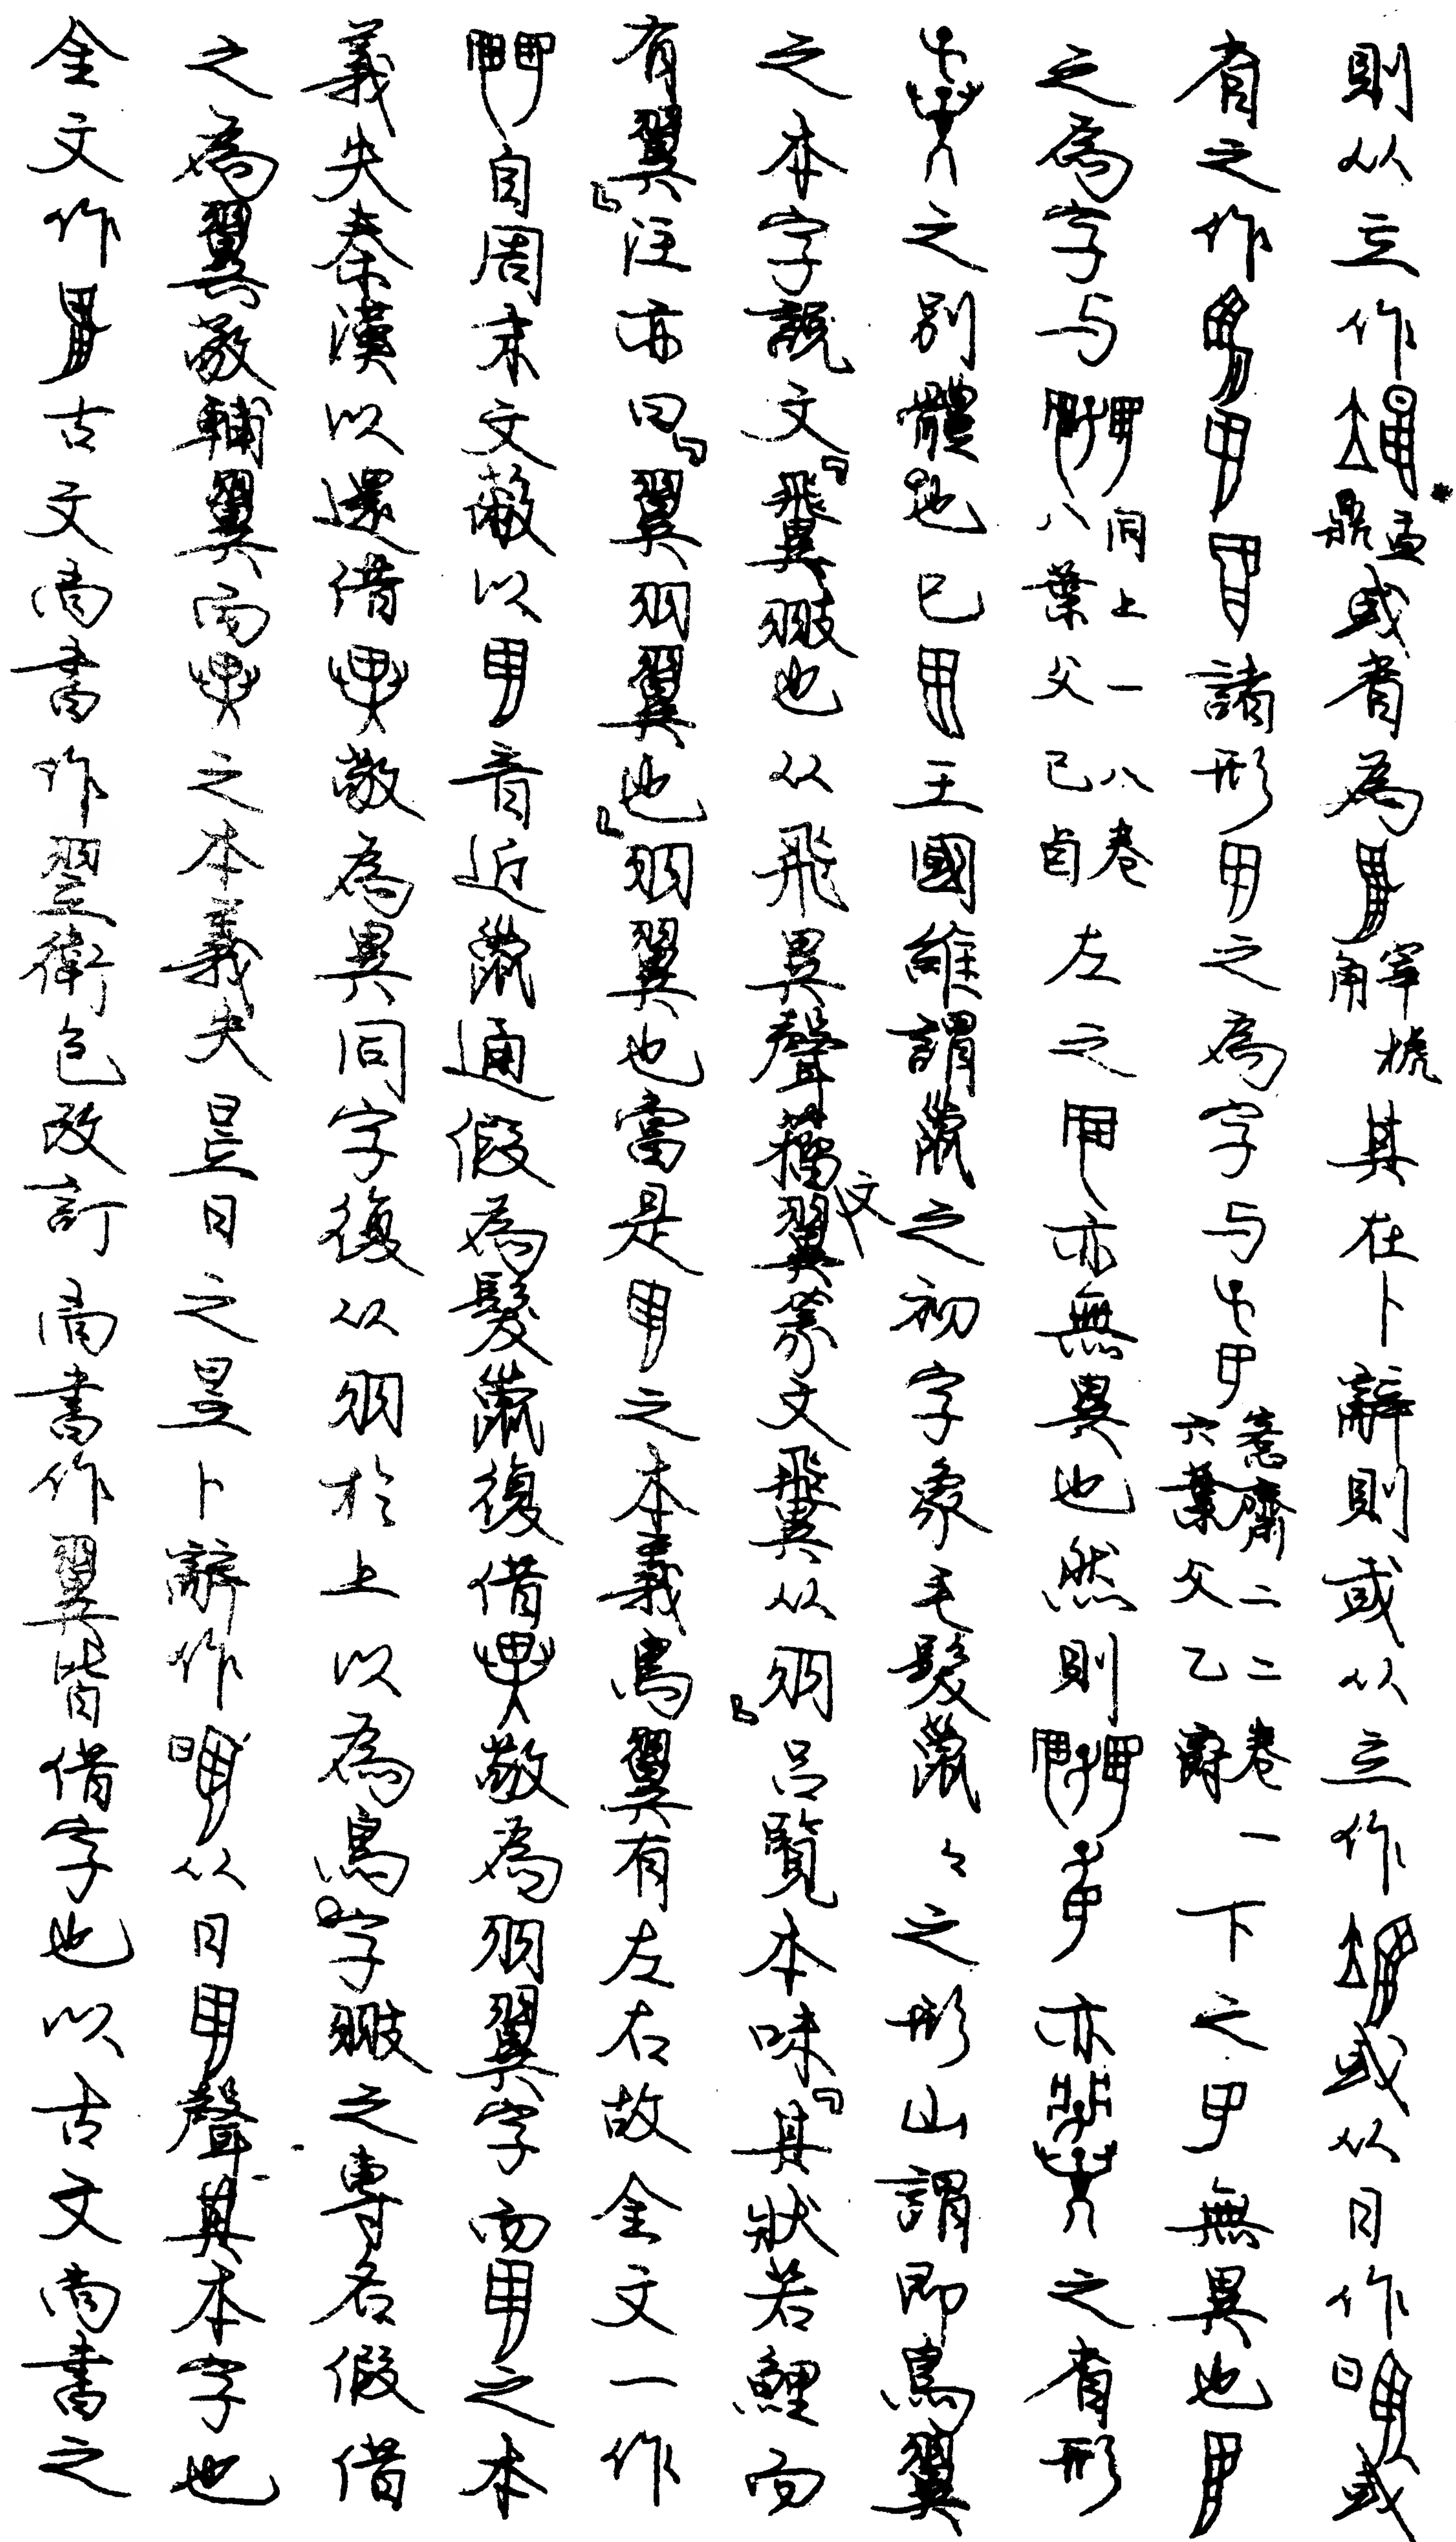 則从立作盂鼎或省為宰椃角其在卜辭則或从立作或从日作或
省之作諸形之為字与愙齋二二卷一六葉父乙爵下之無異也
之為字与同上一八卷八葉父己卣左之亦無異也然則亦之省形
之別體也已王國維謂鬣之初字象毛髮鬣々之形山謂即鳥翼
之本字說文『䨱翄也从飛異聲籒文翼篆文䨱从羽』呂覽本味『其狀若鯉而
有翼』注亦曰『翼羽翼也』羽翼也當是之本義鳥翼有左右故金文一作
自周末文敝以音近鬣通假為髮鬣復借敬為羽翼字而之本
義失秦漢以還借敬為異同字復从羽於上以為鳥字翄之專名假借
之為翼敬輔翼而之本義失昱日之昱卜辭作从日聲其本字也
金文作古文尚書作翌衛包改訂尚書作翼皆借字也以古文尚書之